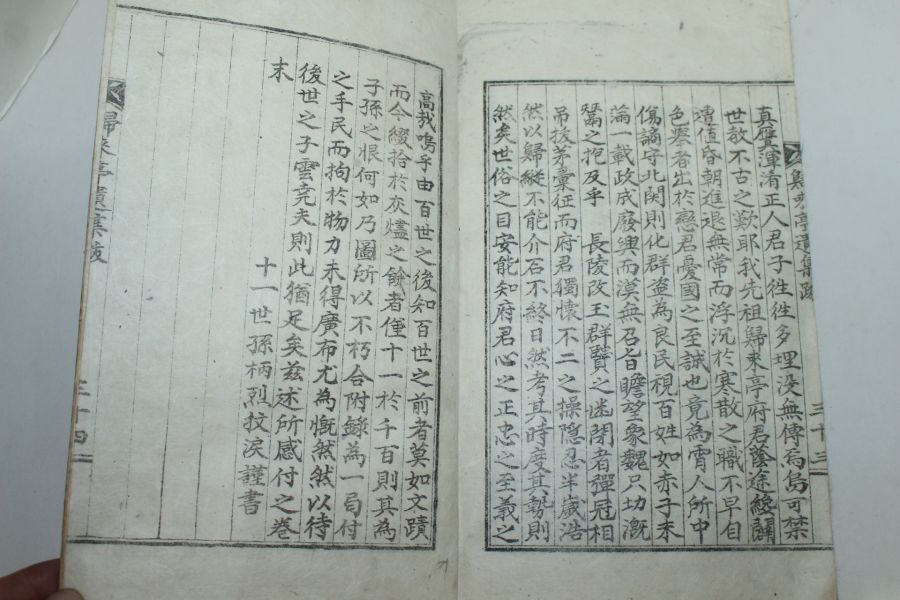 歸來亭遺集跋
三十三
真贋渾淆正人君子徃徃多埋没無傳焉烏可禁
世教不古之歎耶我先祖歸來亭府君蔭途纔闢
遭值昏朝進退無常而浮沉於寒散之職不早自
色擧者出於戀君憂國之至誠也竟為霄人所中
傷謫守北関則化群盗為良民視百姓如赤子未
滿一載政成廢興而漠無召旨瞻望象魏只切漑
鬵之抱及乎 長陵改王群賢之幽閉者彈冠相
吊拔茅彙征而府君獨懷不二之操隱忍半歲浩
然以歸縱不能介石不終日然考其時度其勢則
然矣世俗之目安能知府君心之正忠之至義之
高哉嗚乎由百世之後知百世之前者莫如文蹟
而今綴拾於灰燼之餘者僅十一於千百則其為
子孫之恨何如乃圖所以不朽合附錄為一局付
之手民而拘於物力未得廣布尤為慨然然以待
後世之子雲尭夫則此猶足矣兹述所感付之卷
末
十一世孫柄烈抆淚謹書
歸來亭遺集跋
三十四